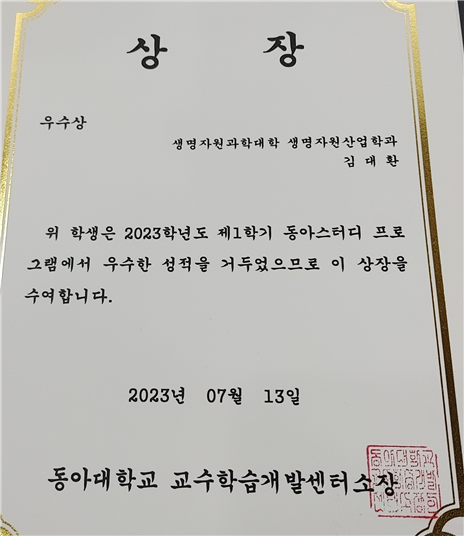 상 장
우수상
생명자원과학대학 생명자원산업학과
김 대 환
위 학생은 2023학년도 제1학기 동아스터디 프로
그램에서 우수한 성적을 거두었으므로 이 상장을
수여합니다.
2023년 07월 13일
동아대학교 교수학습개발센터소장